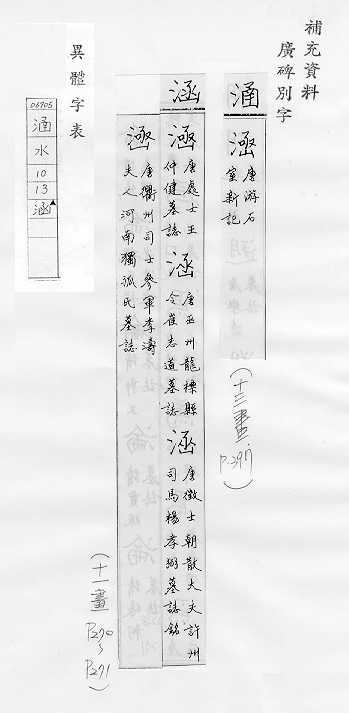 補充資料
廣碑別字
涵
涵 唐游石室新記
(十三畫 P.397)
涵
涵 唐處士王仲健墓誌 涵 唐巫州龍標縣令崔志道墓誌 涵 唐徵士朝散大夫許州司馬楊孝弼墓誌銘
涵 唐衢州司士參軍李濤夫人河南獨孤氏墓誌
(十一畫 P270~P271)
異體字表
06705
涵
水
10
13
涵